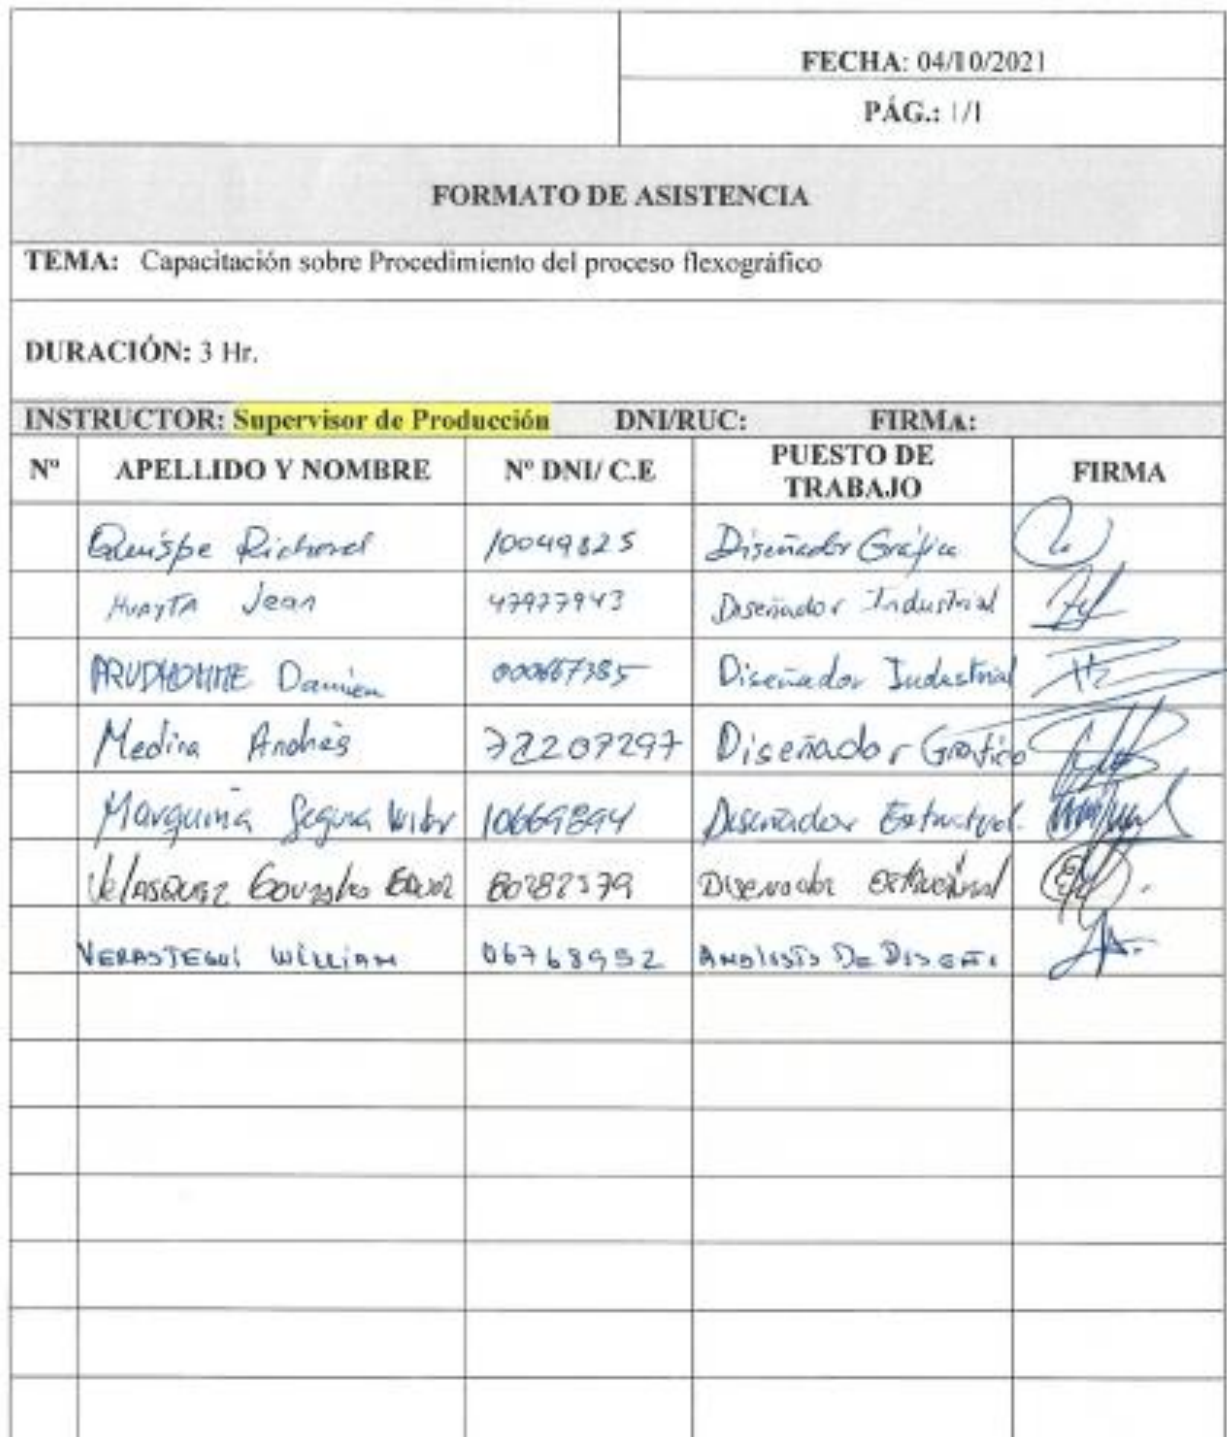 FECHA: 04/10/2021
PÁG.: 1/1
FORMATO DE ASISTENCIA
TEMA: Capacitación sobre Procedimiento del proceso flexográfico
DURACIÓN: 3 Hr.
INSTRUCTOR: Supervisor de Producción DNI/RUC: FIRMA:
Nº APELLIDO Y NOMBRE Nº DNI/ C.E PUESTO DE TRABAJO FIRMA
Quispe Richard 10049825 Diseñador Gráfico
Huayta Jean 47977943 Diseñador Industrial
PRUDHOMME Damien 000667385 Diseñador Industrial
Medina Andrés 72207297 Diseñador Gráfico
Segura 10669894 Diseñador Estructural
Velasquez Gonzales 80282579 Diseñador estructural
VERASTEGUI WILLIAM 06768952 DE